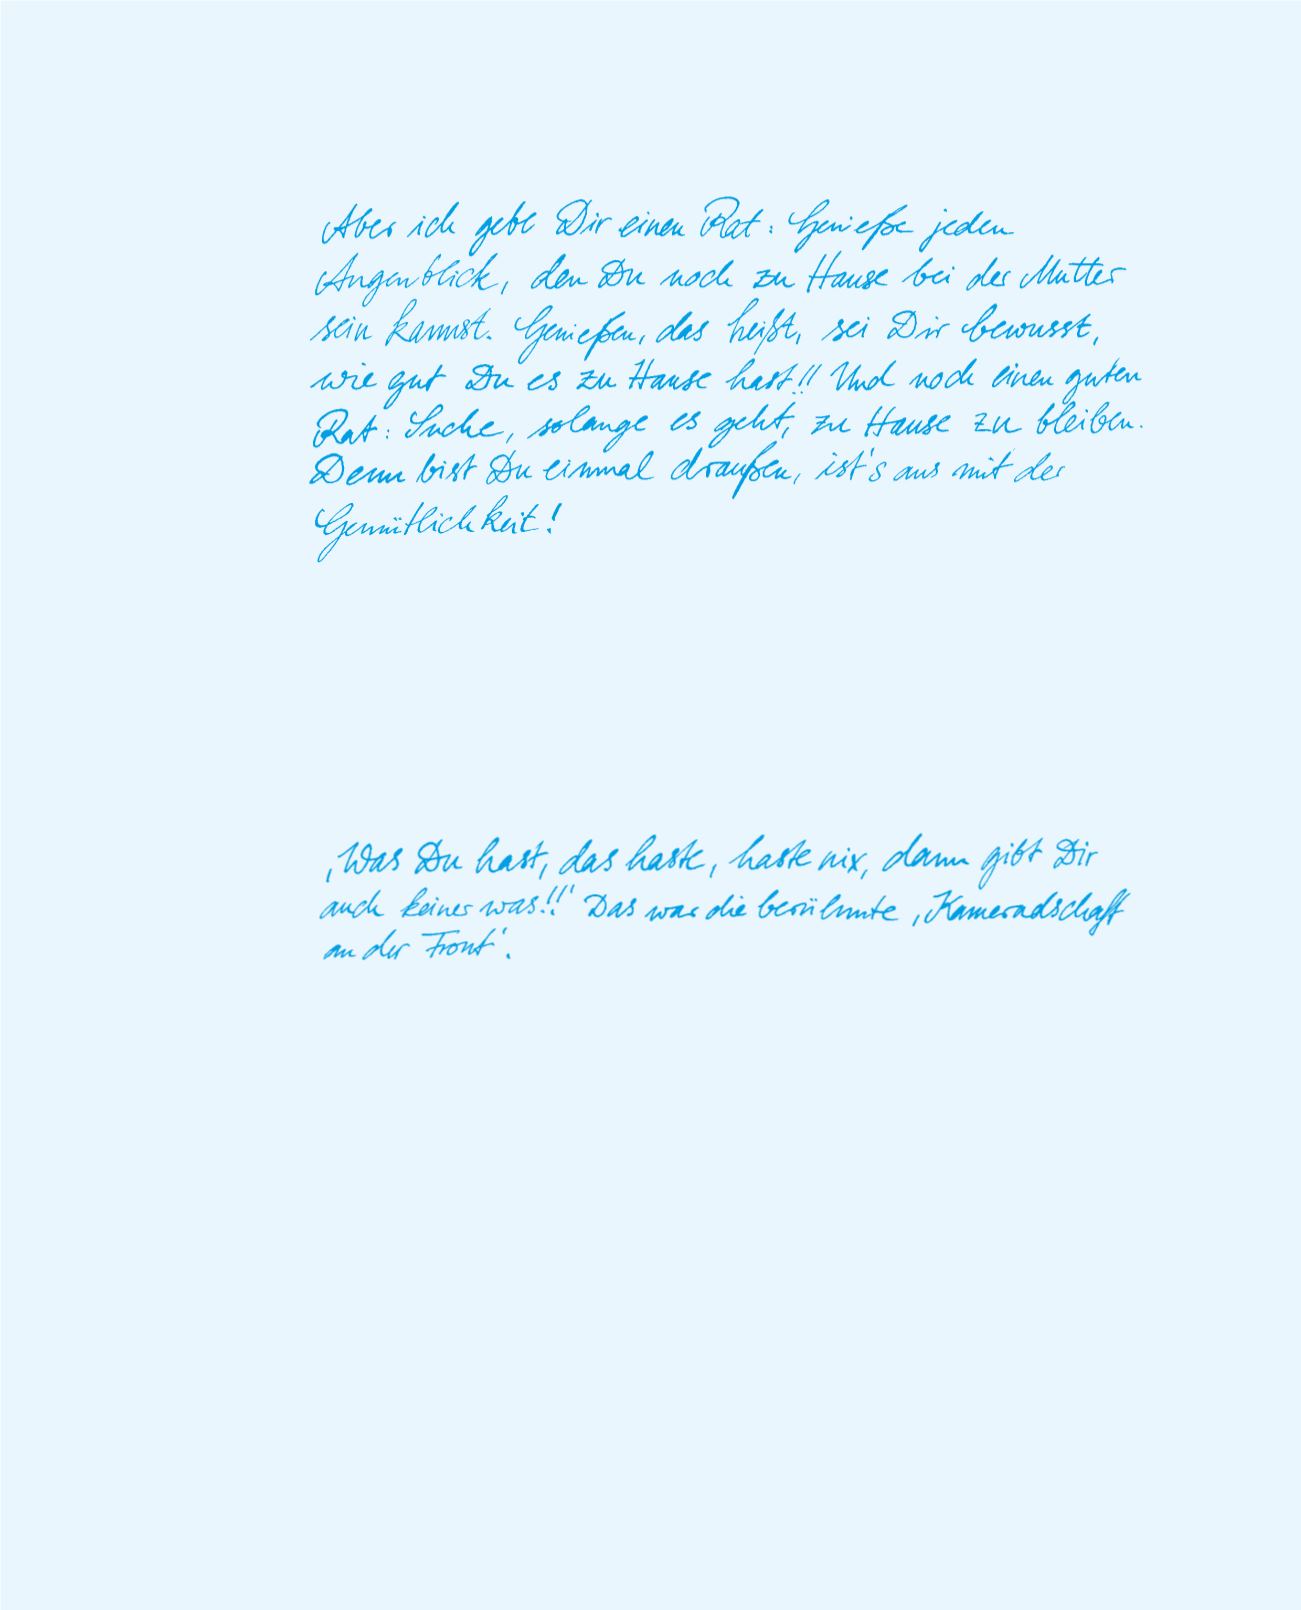 Aber ich gebe Dir einen Rat: Genieße jeden
Augenblick, den Du noch zu Hause bei der Mutter
sein kannst. Genießen, das heißt, sei Dir bewusst,
wie gut Du es zu Hause hast!! Und noch einen guten
Rat: Suche, solange es geht, zu Hause zu bleiben.
Denn bist Du einmal draußen, ist's aus mit der
Gemütlichkeit!
‚Was Du hast, das haste, haste nix, dann gibt Dir
auch keiner was!!' Das war die berühmte ‚Kameradschaft
an der Front'.